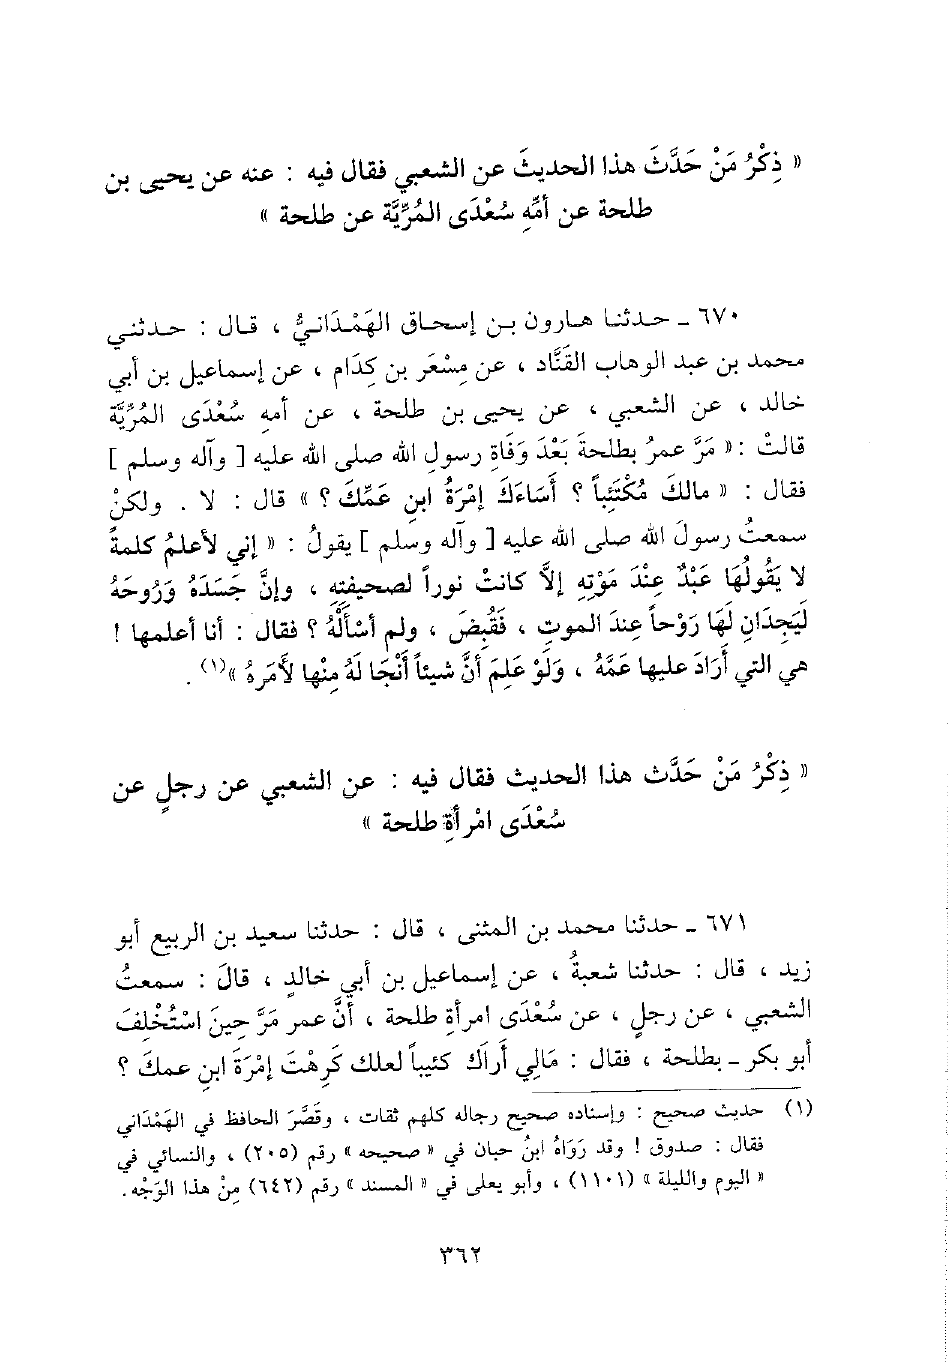 « ذِكْرُ مَنْ حَدَّثَ هذا الحديثَ عن الشعبي فقال فيه : عنه عن يحيى بن
طلحة عن أمِّهِ سُعْدَى المُرِّيَّة عن طلحة »
٦٧٠ ـ حدثنا هارون بن إسحاق الهَمْدَانيُّ ، قال : حدثني
محمد بن عبد الوهاب القَنَّاد ، عن مِسْعَر بن كِدَام ، عن إسماعيل بن أبي
خالد ، عن الشعبي ، عن يحيى بن طلحة ، عن أمهِ سُعْدَى المُرِّيَّة
قالتْ : « مَرَّ عمرُ بطلحةَ بَعْدَ وَفَاةِ رسولِ الله صلى الله عليه [ وآله وسلم ]
فقال : « مالكَ مُكْتَئِباً ؟ أَسَاءَكَ إمْرَةُ ابنِ عَمِّكَ ؟ » قال : لا . ولكنْ
سمعتُ رسولَ الله صلى الله عليه [ وآله وسلم ] يقولُ : « إني لأعلمُ كلمةً
لا يَقُولُهَا عَبْدٌ عِنْدَ مَوْتِهِ إلاَّ كانتْ نوراً لصحيفتِهِ ، وإنَّ جَسَدَهُ وَرُوحَهُ
لَيَجِدَانِ لَهَا رَوْحاً عِندَ الموتِ ، فَقُبِضَ ، ولم أسْأَلْهُ ؟ فقال : أنا أعلمها !
هي التي أرَادَ عليها عَمَّهُ ، وَلَوْ عَلِمَ أنَّ شيئاً أنْجَا لَهُ مِنْها لأَمَرَهُ »(١) .
« ذِكْرُ مَنْ حَدَّث هذا الحديث فقال فيه : عن الشعبي عن رجلٍ عن
سُعْدَى امْرأةِ طلحة »
٦٧١ ـ حدثنا محمد بن المثنى ، قال : حدثنا سعيد بن الربيع أبو
زيد ، قال : حدثنا شعبةُ ، عن إسماعيل بن أبي خالدٍ ، قالَ : سمعتُ
الشعبي ، عن رجلٍ ، عن سُعْدَى امرأةِ طلحة ، أنَّ عمر مَرَّ حِينَ اسْتُخْلِفَ
أبو بكر ـ بطلحة ، فقال : مَالِي أَرَاكَ كئيباً لعلك كَرِهْتَ إمْرَةَ ابنِ عمكَ ؟
(١) حديث صحيح : وإسناده صحيح رجاله كلهم ثقات ، وقَصَّرَ الحافظ في الهَمْدَاني
فقال : صدوق ! وقد رَوَاهُ ابنُ حبان في « صحيحه » رقم (٢٠٥) ، والنسائي في
« اليوم والليلة » (١١٠١) ، وأبو يعلى في « المسند » رقم (٦٤٢) مِنْ هذا الوَجْه .
٣٦٢